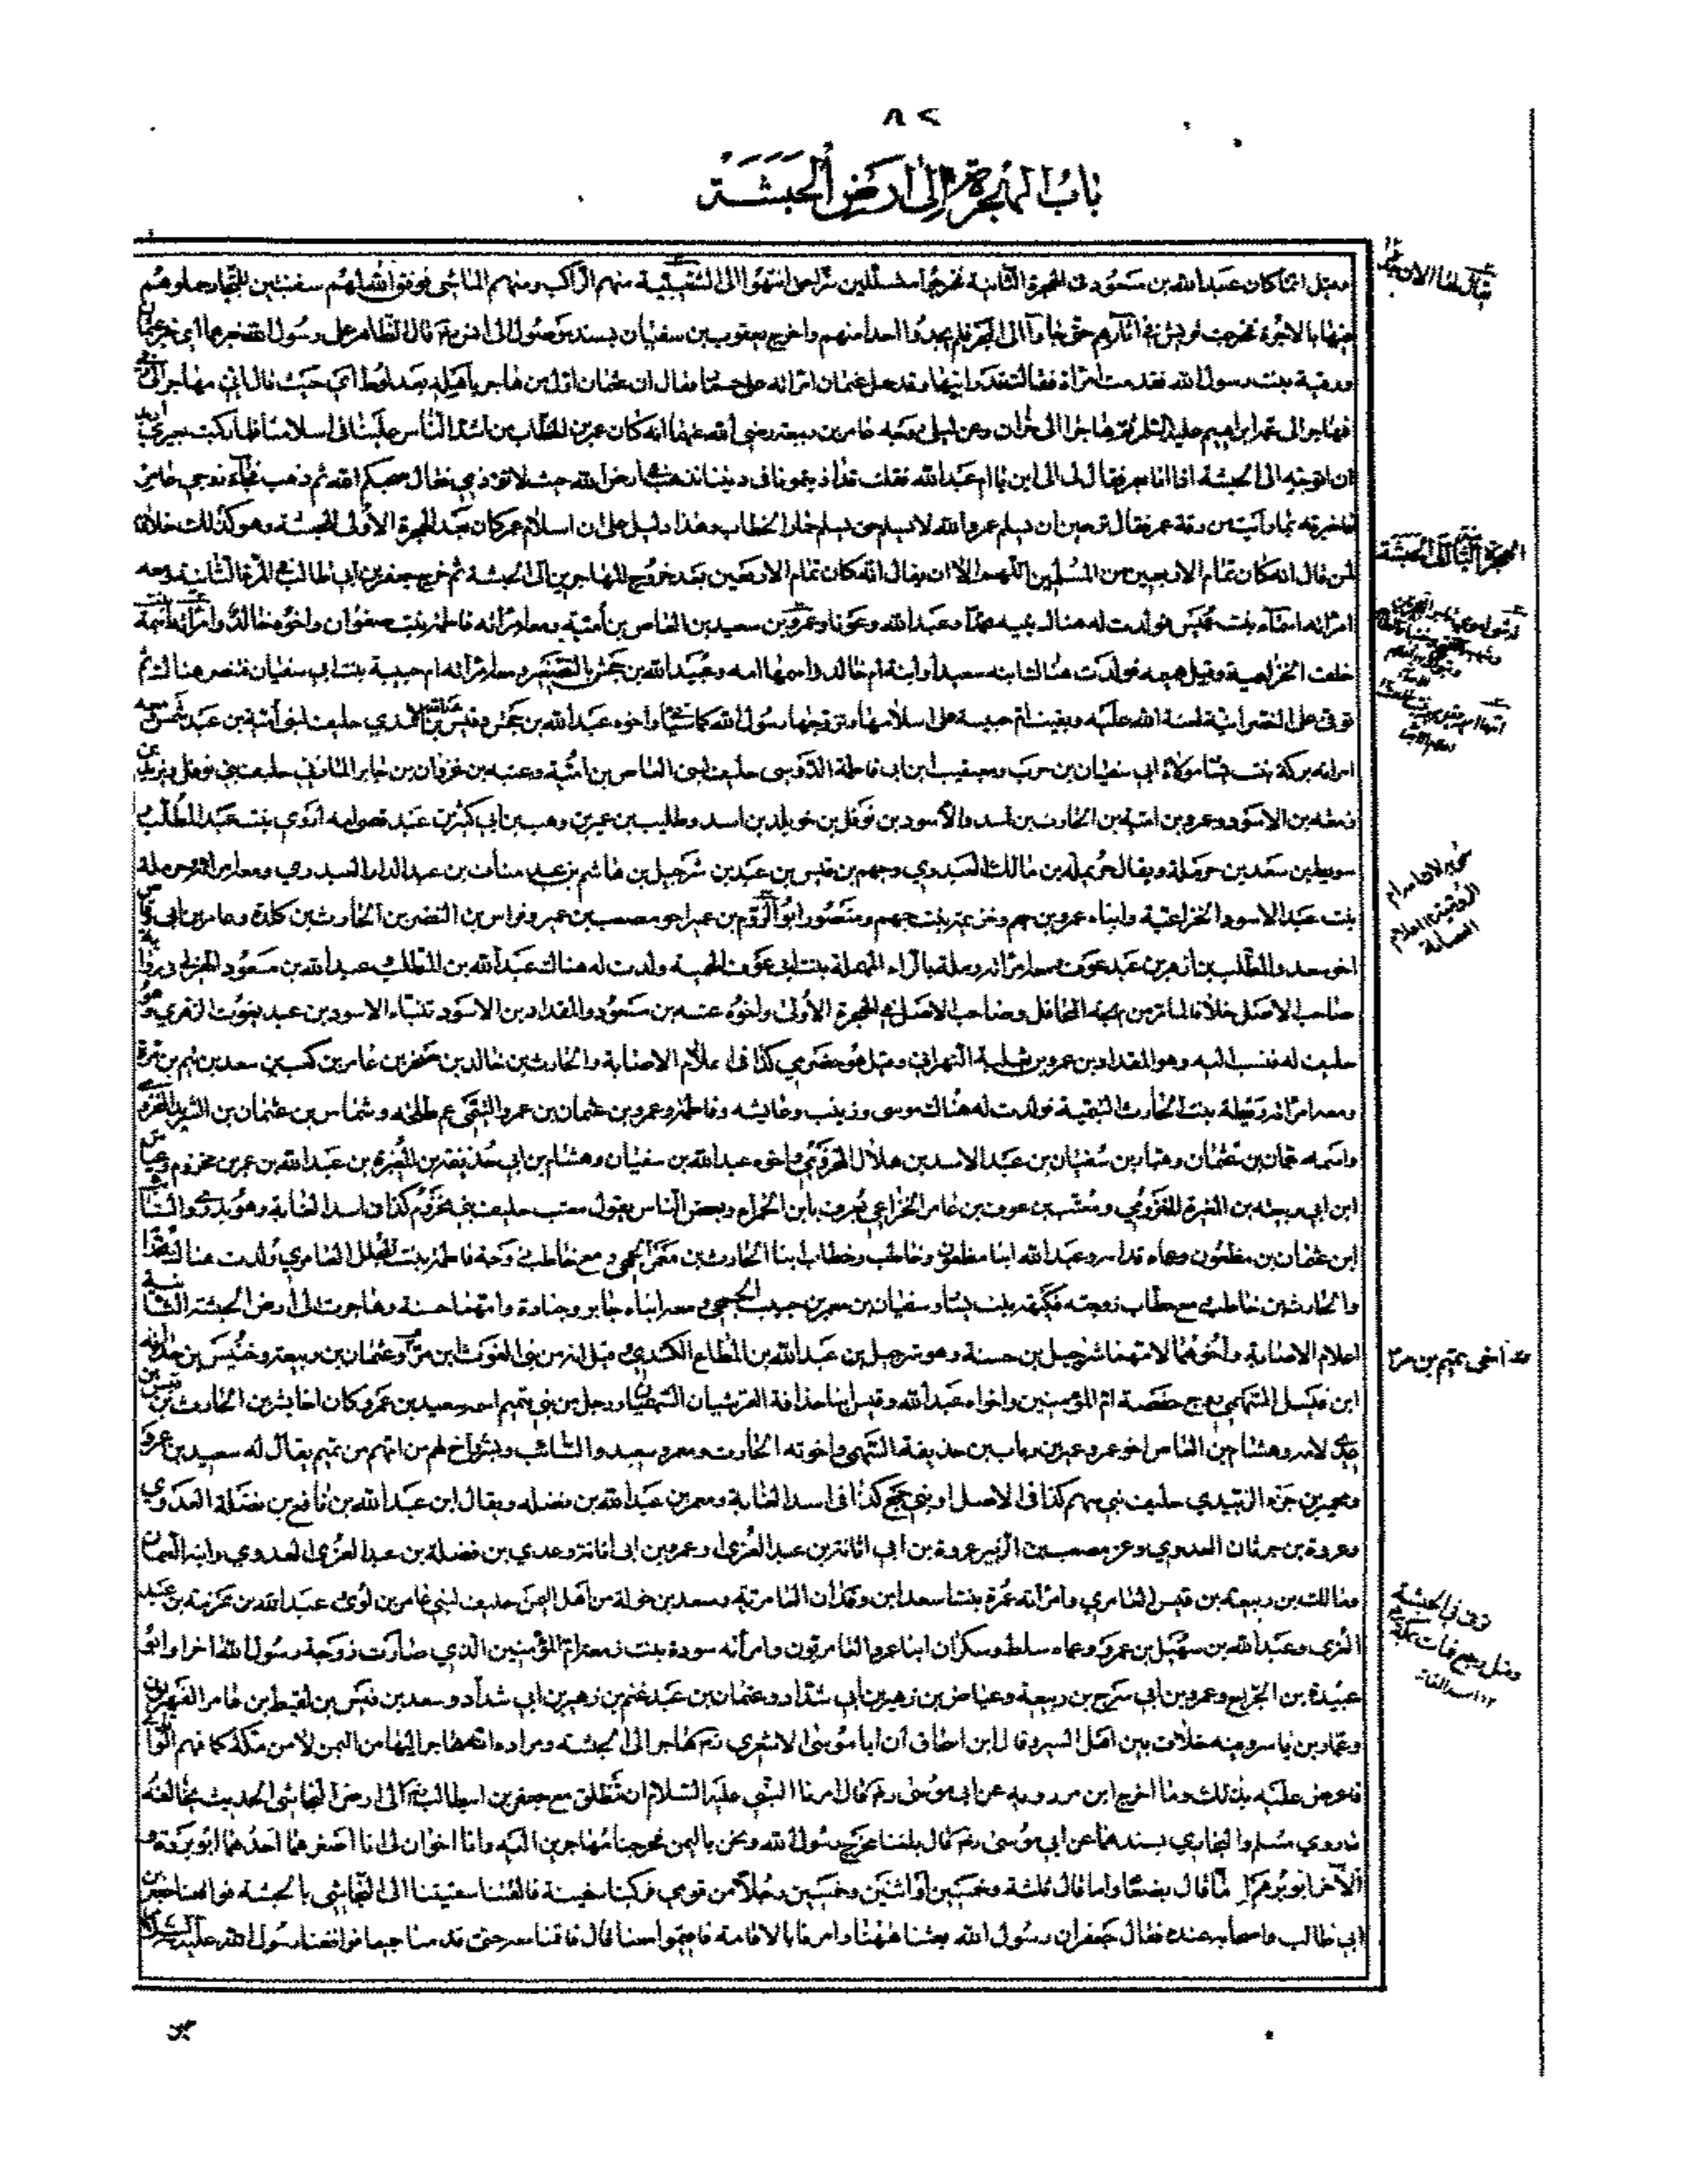 ٨٢
باب الهجرة إلى أرض الحبشة
وقيل انما كان عبد الله بن مسعود في الهجرة الثانية فخرجوا متسللين سرا حتى انتهوا الى الشعيبة منهم الراكب ومنهم الماشي فوفق الله لهم سفينتين للتجار حملوهم
يقال لها الان
فيها بالاجرة فخرجت قريش في آثارهم حتى جاؤا الى البحر فلم يجدوا احدا منهم واخرج يعقوب بن سفيان بسند موصول الى انس قال ابطأ على رسول الله خبرهما
ورقية بنت رسول الله فقدمت امرأة فقالت قد رأيتهما وقد حمل عثمان امرأته على حمار فقال ان عثمان اول من هاجر باهله بعد لوط حيث قال اني مهاجر الى
فهاجر الى عمه ابراهيم عليه السلام ثم هاجرا الى حران وعن ليلى زوجة عامر بن ربيعة رضي الله عنها انه كان عمر بن الخطاب من اشد الناس علينا في اسلامنا فلما ركبت بعيري اريد
ان اتوجه الى الحبشة اذا انا به فقال لي الى اين يا ام عبد الله فقلت قد آذيتمونا في ديننا نذهب في ارض الله حيث لا نؤذى فقال صحبكم الله ثم ذهب فجاء زوجي عامر
فاخبرته بما رأيت من رقة عمر فقال ترجين ان يسلم عمر والله لا يسلم حتى يسلم حمار الخطاب وهذا دليل على ان اسلام عمر كان بعد الهجرة الأولى للحبشة وهو كذلك خلافا
الهجرة الثانية الى الحبشة
لمن قال انه كان تمام الاربعين من المسلمين اللهم الا ان يقال انه كان تمام الاربعين بعد خروج المهاجرين الى الحبشة ثم خرج جعفر بن ابي طالب في المرة الثانية ومعه
امرأته اسماء بنت عميس فولدت له هنالك بنيه محمدا وعبد الله وعونا وعمرو بن سعيد بن العاص بن أمية ومعه امرأته فاطمة بنت صفوان واخوه خالد وامرأته امينة بنت
خلف الخزاعية وقيل هميمة فولدت هنالك ابنه سعيدا وابنة ام خالد واسمها امة وعبيد الله بن جحش بالتصغير ومعه امرأته ام حبيبة بنت ابي سفيان فتنصر هنالك ثم
توفي على النصرانية لعنة الله عليه وبقيت ام حبيبة على اسلامها وتزوجها رسول الله كما سيأتي واخوه عبد الله بن جحش وقيس بن عبد الله الاسدي حليف لبني أمية بن عبد شمس معه
امرأته بركة بنت يسار مولاة ابي سفيان بن حرب ومعيقيب بن ابي فاطمة الدوسي حليف لبني العاص بن امية وعتبة بن غزوان بن جابر المازني حليف بني نوفل ويزيد بن
زمعة بن الاسود وعمرو بن امية بن الحارث بن اسد والأسود بن نوفل بن خويلد بن اسد وطليب بن عمير بن وهب بن ابي كثير بن عبد قصي وامه اروى بنت عبد المطلب
سويبط بن سعد بن حرملة ويقال حريملة بن مالك العبدري وجهم بن قيس بن عبد بن شرحبيل بن هاشم بن عبد مناف بن عبد الدار العبدري ومعه امرأته ام حرملة
بنت عبد الاسود الخزاعية وابناه عمرو بن جهم وخزيمة بنت جهم وابو الروم بن عمير اخو مصعب بن عمير وفراس بن النضر بن الحارث بن كلدة وعامر بن ابي وقاص
اخو سعد والمطلب بن ازهر بن عبد عوف معه امرأته رملة بالراء المهملة بنت ابي عوف السهمية ولدت له هنالك عبد الله بن المطلب وعبد الله بن مسعود الهذلي
صاحب الاصل خلافا لما مر من بهجة المحافل وصاحب الاصل في الهجرة الأولى واخوه عتبة بن مسعود والمقداد بن الاسود تبناه الاسود بن عبد يغوث الزهري
حليف له فنسب اليه وهو المقداد بن عمرو بن ثعلبة البهراني وقيل هو حضرمي كذا في اعلام الاصابة والحارث بن خالد بن صخر بن عامر بن كعب بن سعد بن تيم بن مرة
ومعه امرأته ريطة بنت الحارث التيمية فولدت له هناك موسى وزينب وعايشه وفاطمة وعمرو بن عثمان بن عمرو التيمي عم طلحة وشماس بن عثمان بن الشريد المخزومي
واسمه عثمان بن عثمان وهبار بن سفيان بن عبد الاسد بن هلال المخزومي واخوه عبد الله بن سفيان وهشام بن ابي حذيفة بن المغيرة بن عبد الله بن عمر بن مخزوم وعياش
ابن ابي ربيعة بن المغيرة المخزومي ومعتب بن عوف بن عامر الخزاعي يعرف بابن الحمراء وبعض الناس يقول معتب حليف بني مخزوم كذا في اسد الغابة وهو بدري والسائب
ابن عثمان بن مظعون وعماه قدامة وعبد الله ابنا مظعون وحاطب وخطاب ابنا الحارث بن معمر الجمحي ومع حاطب زوجة فاطمة بنت المجلل العامري ولدت هنالك محمدا
والحارث بن حاطب ومع خطاب زوجته فكيهة بنت يسار وسفيان بن معمر بن حبيب الجمحي ومعه ابناه جابر وجنادة وامهما حسنة وهاجرت الى ارض الحبشة الثانية
اعلام الاصابة واخوهما لامهما شرحبيل بن حسنة وهو شرحبيل بن عبد الله بن المطاع الكندي وقيل انه من بني الغوث ابن مر وعثمان بن ربيعة وخنيس بن حذافة
اخي تميم بن مر
ابن قيس السهمي زوج حفصة ام المؤمنين واخواه عبد الله وقيس ابنا حذافة القرشيان السهميان ورجل من بني تميم اسمه سعيد بن عمرو كان اخا بشر بن الحارث بن قيس
لامه وهشام بن العاص اخو عمرو وعمير بن رياب بن حذيفة السهمي واخوته الحارث ومعمر وسعيد والسائب وبشر واخ لهم من امهم من تميم يقال له سعيد بن عمرو
ومحمية بن جزء الزبيدي حليف بني سهم كذا في الاصل او بني جمح كذا في اسد الغابة ومعمر بن عبد الله بن نضلة ويقال ابن عبد الله بن نافع بن نضلة العدوي
وعروة بن العدوي وعن مصعب بن الزبير عروة بن ابي اثاثة بن عبد العزى وعمرو بن ابي اثاثة وعدي بن نضلة بن عبد العزى العدوي وابنه النعمان
ومالك بن ربيعة بن قيس العامري وامرأته عمرة بنت اسعد ابن وقدان العامرية وسعد بن خولة من اهل اليمن حليف لبني عامر بن لوى عبد الله بن مخرمة بن عبد
توفي في الحبشة
العزى وعبد الله بن سهيل بن عمرو وعماه سليط وسكران ابنا عمرو العامريون وامرأته سودة بنت زمعة ام المؤمنين الذي صارت زوجة رسول الله اخرا وابو
وقيل رجع فمات بمكة
اسد الغابة
عبيدة بن الجراح وعمرو بن ابي سرح بن ربيعة وعياض بن زهير بن ابي شداد وعثمان بن عبد غنم بن زهير بن ابي شداد وسعد بن قيس بن لقيط بن عامر الفهريون
وعمار بن ياسر وفيه خلاف بين اهل السير وقال ابن اسحاق ان ابا موسى الاشعري هاجر الى الحبشة ومراده انه هاجر اليها من اليمن لا من مكة كما فهم
فاعترض عليه بذلك وما اخرج ابن مردويه عن ابي موسى قال امرنا النبي عليه السلام ان ننطلق مع جعفر بن ابي طالب الى ارض النجاشي الحديث يخالفه
روى مسلم والبخاري بسندهما عن ابي موسى قال بلغنا مخرج رسول الله ونحن باليمن فخرجنا مهاجرين اليه وانا اخوان لي انا اصغرهما احدهما ابو بردة و
الآخر ابو رهم اما قال بضعا واما قال ثلثة وخمسين او اثنين وخمسين رجلا من قومي فركبنا سفينة فالقتنا سفينتنا الى النجاشي بالحبشة فوافقنا جعفر بن
ابي طالب واصحابه عنده فقال جعفر ان رسول الله بعثنا ههنا وامرنا بالاقامة فاقيموا معنا قال فاقمنا معه حتى قدمنا جميعا فوافقنا رسول الله عليه السلام